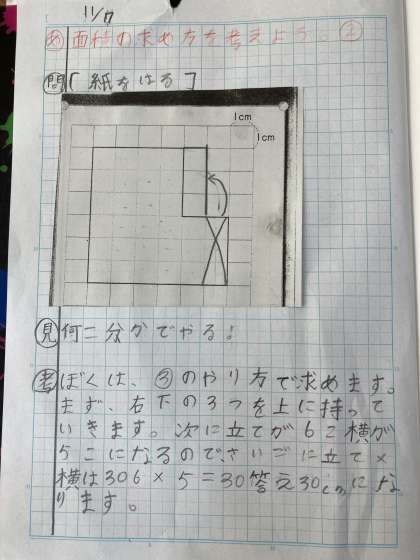 11/17
め 面積の求め方を考えよう。②
問 [ 紙をはる ]
1cm
1cm
見 何こ分かでやる!
考 ぼくは、③のやり方で求めます。
まず、右下の3つを上に持って
いきます。次に立てが6こ横が
5こになるのでさいごに立て×
横は306×5=30答え30cmにな
ります。